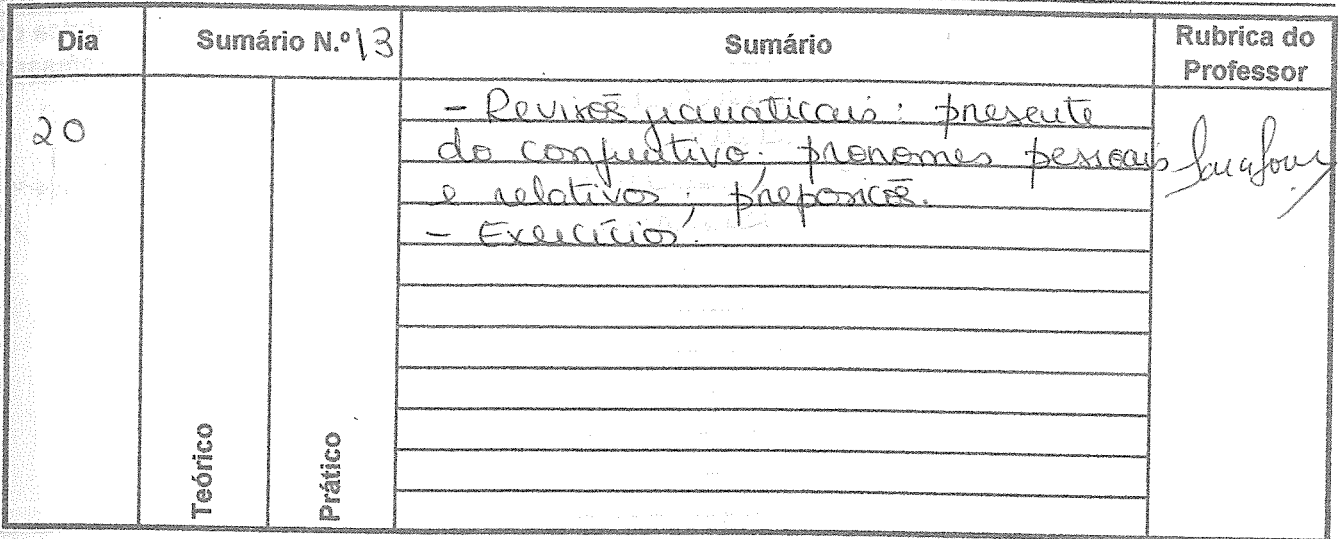 Dia Sumário N.º 13 Sumário Rubrica do Professor
20
- Revisões gramaticais: presente
do conjuntivo; pronomes pessoais
e relativos; preposições.
- Exercícios.
Teórico
Prático